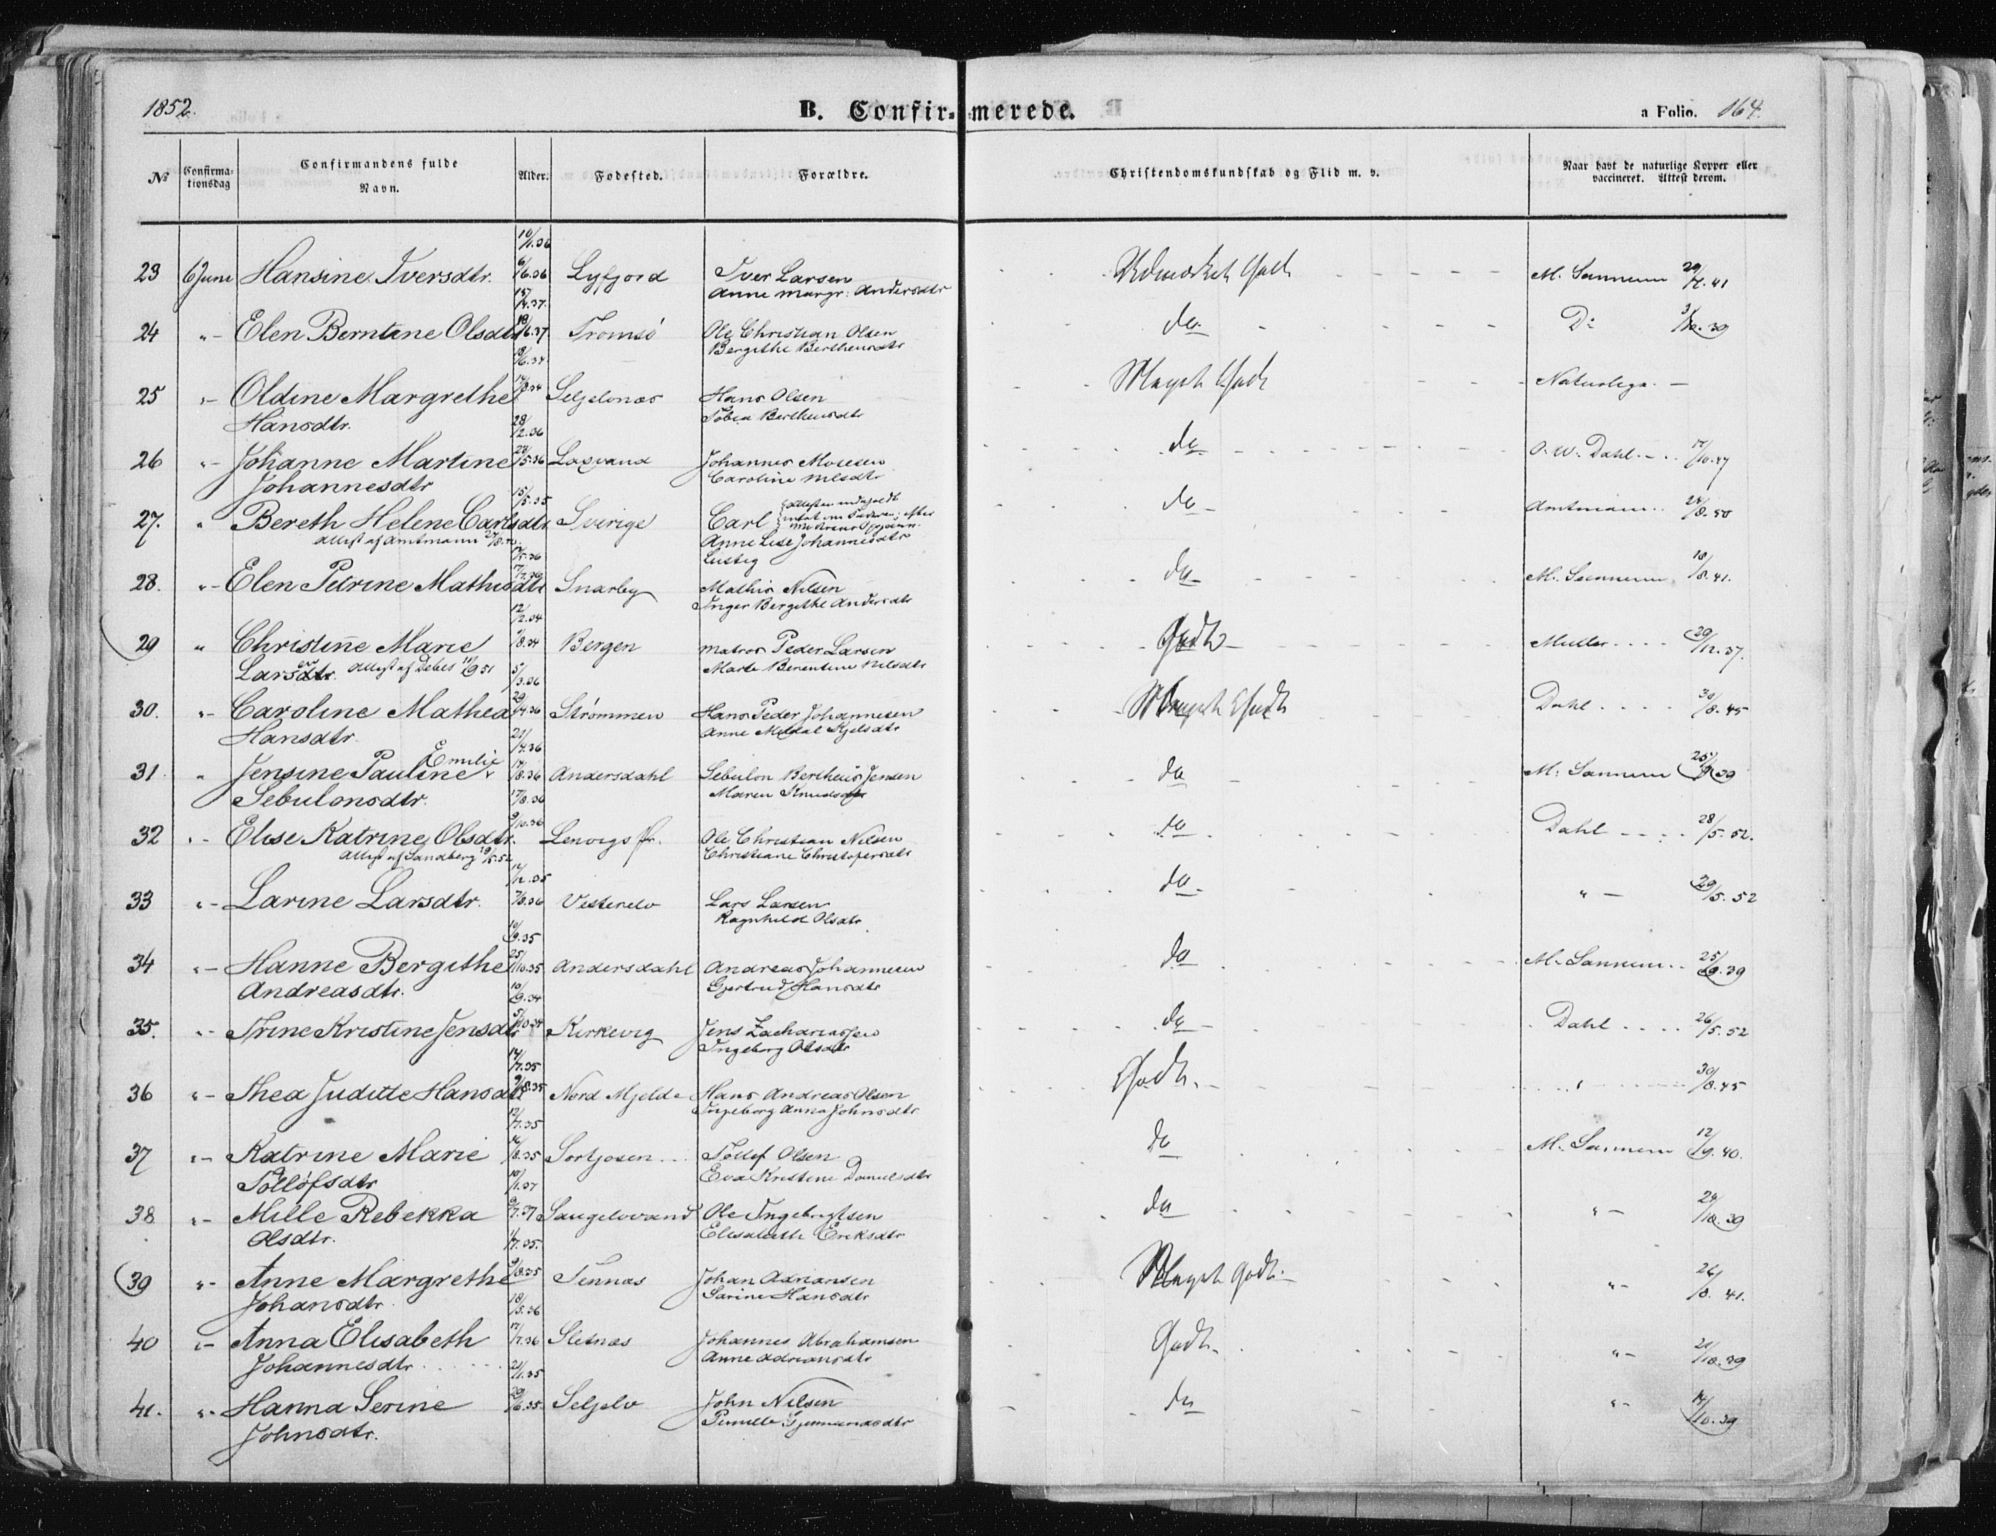 1852.
B. Confir-merede.
a Folio. 164.
№
Confirma-tionsdag
Confirmandens fulde Navn.
Alder.
Fødested.
Forældre.
Christendomskundskab og Flid m. v.
Naar havt de naturlige Kopper eller vaccineret. Attest derom.
10/1.36
23 6 June Hansine Iversdtr. 6/6.36 Lyfjord Iver Larsen Udmærket Godt 29/7.41
Anne Margr: Andersdtr
24 "- Elen Berntine Olsdtr 18/6.37 Tromsø Ole Christian Olsen do D: 3/10.39
Bergithe Berthensdtr
25 "- Oldine Margrethe Seljelvnæs Hans Olsen Meget Godt Naturlige. -
Hansdtr.
28/2.36
26 "- Johanne Martine 24/5.36 Laxvand Johannes Mosesen do O. W. Dahl 17/10.47
Johannesdtr Caroline Nilsdtr
15/5.35
27. " Bereth Helene Carlsdtr Sverige Carl do Amtmann
Attest af Amtmann Anne Lise Johannesdtr
Lustig
28. "- Elen Petrine Mathisdtr Snarby Mathis Nilsen do 18/8.41.
Inger Bergithe Andersdtr
12/2.34
29 " Christine Marie 7/8.34 Bergen Matros Peder Larsen Godt Muller 29/12.37.
Larsdtr. Attest af Debes 11/9 51 Marte Berentine Nilsdtr
5/3.36
30. "- Caroline Mathea 29/4.36 Strømmen Hans Peder Johannesen Meget Godt Dahl 30/8.45
Hansdtr. Anne Kjelsdtr
21/7.36
Emilie
31 " Jensine Pauline 17/8.36 Andersdahl Sebulon Bertheus Jensen do 25/9.39
Sebulonsdtr. 17/8.36 Maren Knudsdtr
32 "- Elise Katrine Olsdtr. 9/10.36 Lenvigs Pr. Ole Christian Nilsen do Dahl 28/5.52.
Attest af Sandberg 19/5.52 Christiane Christofersdtr
12/12.35
33 "- Larine Larsdtr. 7/8.36 Vesterelv Lars Larsen do " - 29/5.52
Ragnhild Olsdtr.
10/9.35
34 "- Hanne Bergithe 25/10.35 Andersdahl Andreas Johannesen do 25/9.39
Andreasdtr. 10/9.34 Gjertrud Hansdtr
35. "- Trine Kristine Jensdtr 5/10.34 Kirkevig Jens Zachariassen do Dahl 26/5.52
Ingeborg Olsdtr
14/7.35
36 "- Thea Juditte Hansdtr 9/8.35 Nord Mjelde Hans Andreas Olsen Godt. " 30/8.45
Ingeborg Anna Johnsdtr
12/7.35
37 "- Katrine Marie 16/8.35 Sortjosen Tollef Olsen do 12/9.40.
Tolløfsdtr 10/1.37 Eva Kristine Danielsdtr
38 "- Mille Rebekka 9/7.37 Ole Ingebrigtsen do "- 24/10.39
Olsdtr. 11/7.35. Elisabeth Eriksdtr
39 "- Anne Margrethe 9/8.35 Tennæs Johan Adriansen Meget Godt "- 26/8.41.
Johansdtr. 18/5.36 Sarine Hansdtr
40 "- Anna Elisabeth 17/7.36 Sletnæs Johannes Abrahamsen Godt. "- 21/10.39
Johannesdtr. 21/1.35 Anne Adriansdtr
41. "- Hanna Serine 29/6.35. Seljelv John Nilsen do "- 14/10.39
Johnsdtr.